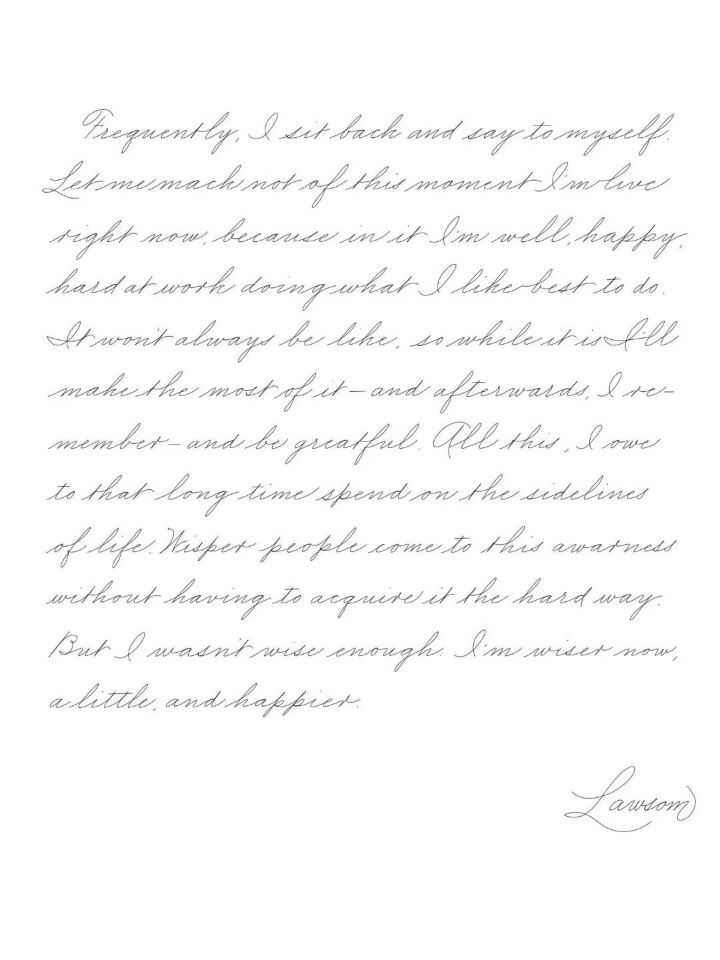 Frequently, I sit back and say to myself.
Let me mach not of this moment I'm live
right now, because in it I'm well, happy,
hard at work doing what I like best to do.
It won't always be like, so while it is I'll
make the most of it – and afterwards, I re-
member – and be greatful. All this, I owe
to that long time spend on the sidelines
of life. Wisper people come to this awarness
without having to acquire it the hard way.
But I wasn't wise enough. I'm wiser now,
a little, and happier.
Lawsom